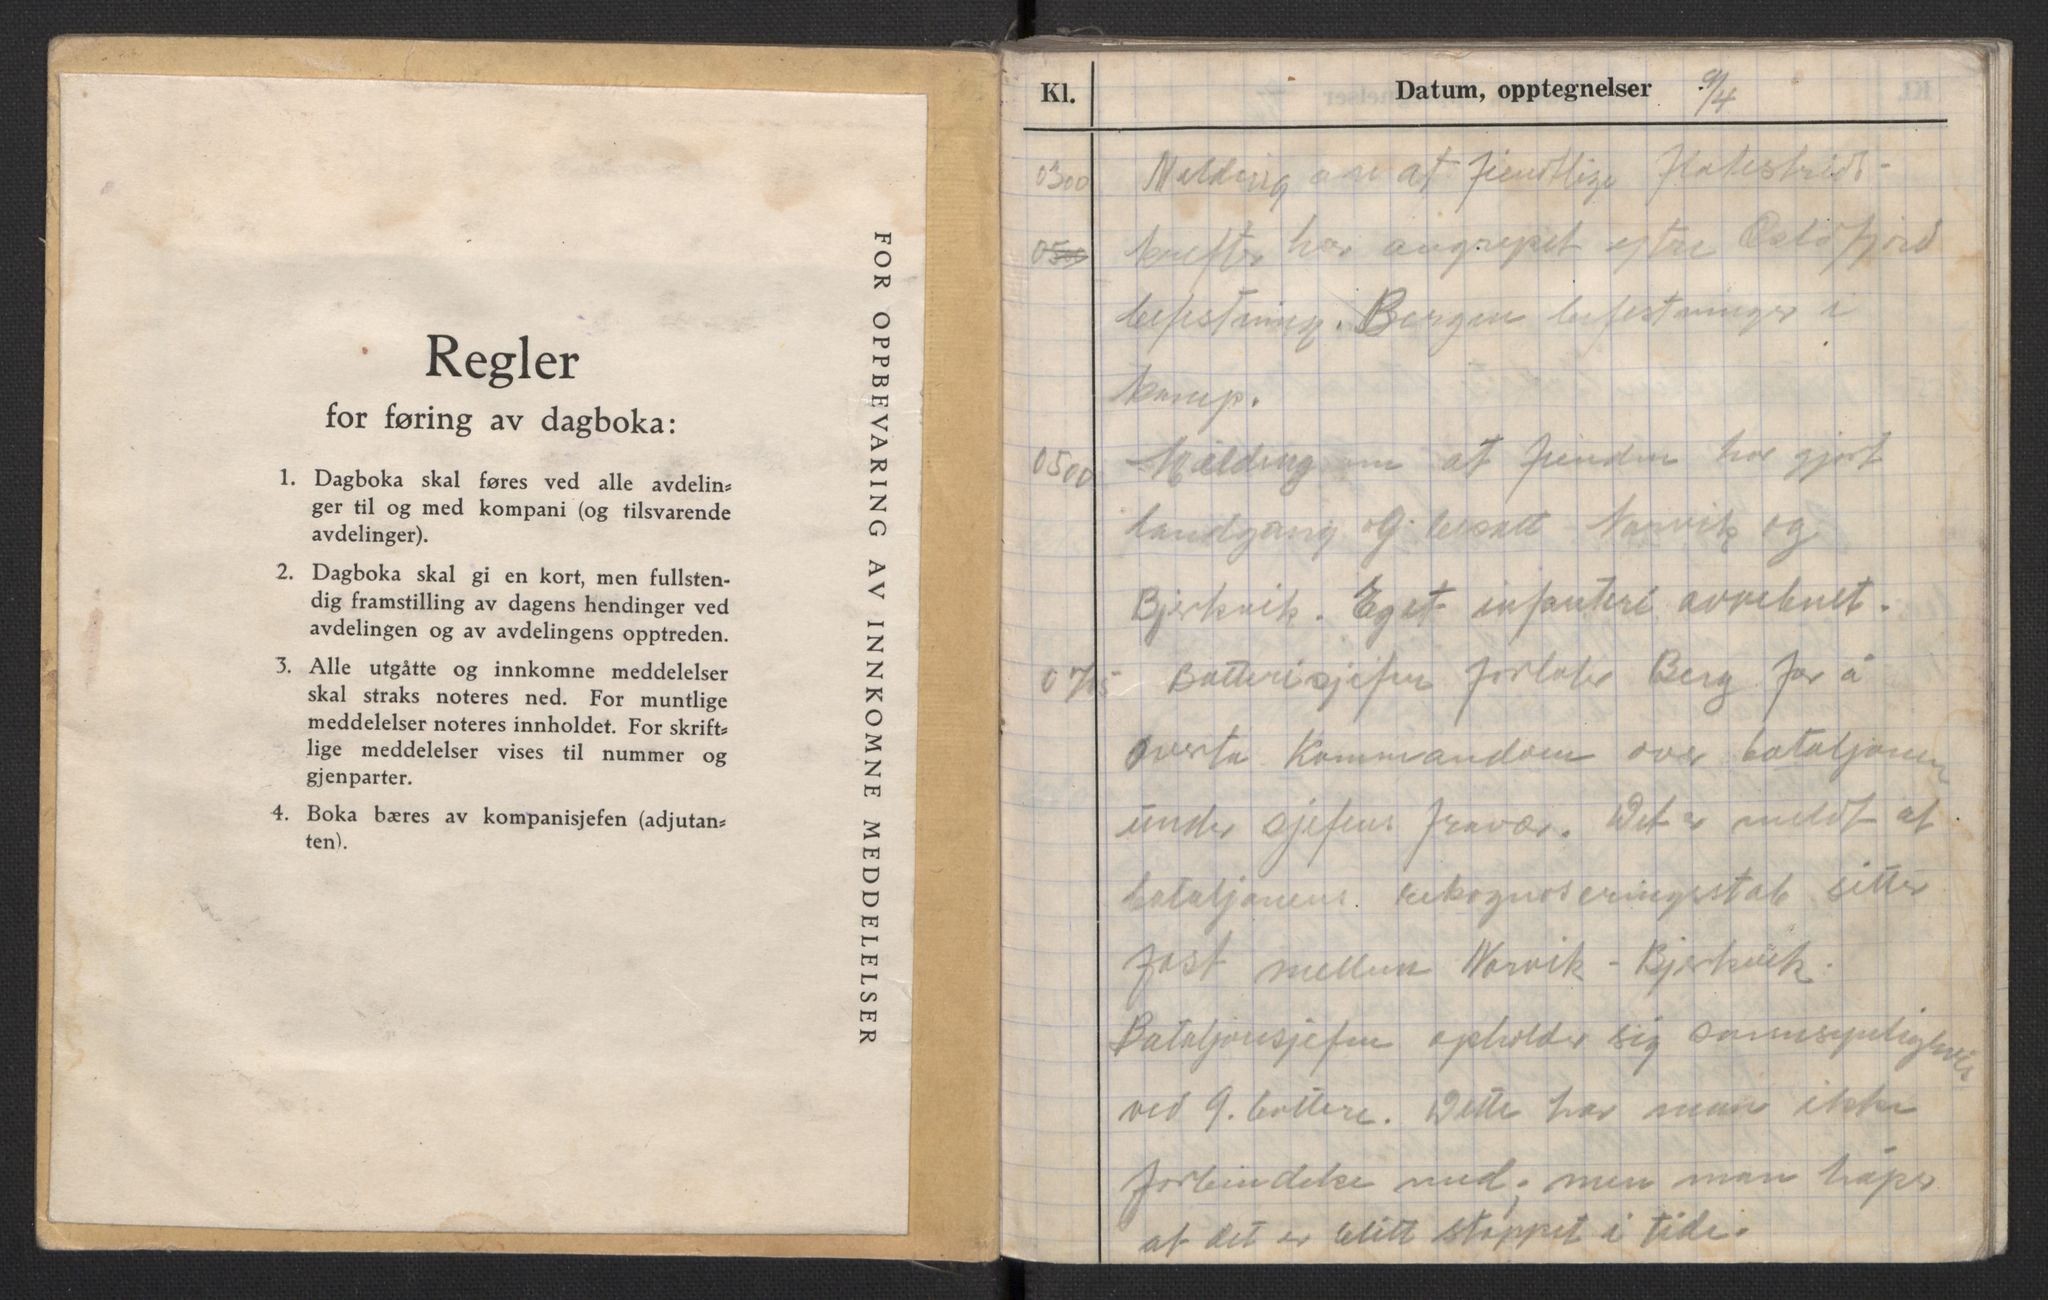 Regler
for føring av dagboka:
1. Dagboka skal føres ved alle avdelin-
ger til og med kompani (og tilsvarende
avdelinger).
2. Dagboka skal gi en kort, men fullsten-
dig framstilling av dagens hendinger ved
avdelingen og av avdelingens opptreden.
3. Alle utgåtte og innkomne meddelelser
skal straks noteres ned. For muntlige
meddelelser noteres innholdet. For skrift-
lige meddelelser vises til nummer og
gjenparter.
4. Boka bæres av kompanisjefen (adjutan-
ten).
FOR OPPBEVARING AV INNKOMNE MEDDELELSER
Kl. Datum, opptegnelser 9/4
0300 Melding om at fiendtlige
0500 krefter har angrepet ytre Oslofjord
befestning. Bergen befestninger i
kamp.
0500 Melding om at fienden har gjort
landgang og besatt Narvik og
Bjerkvik. Eget infanteri avvebnet.
0705 Batterisjefen forlater Berg for å
overta kommandoen over bataljonen
under sjefens fravær. Det er meldt at
bataljonens rekognoseringsstab sitter
fast mellem Narvik - Bjerkvik.
Bataljonsjefen opholder sig sannsynligvis
ved 9. batteri. Dette har man ikke
forbindelse med, men man håper
at det er blitt stoppet i tide.